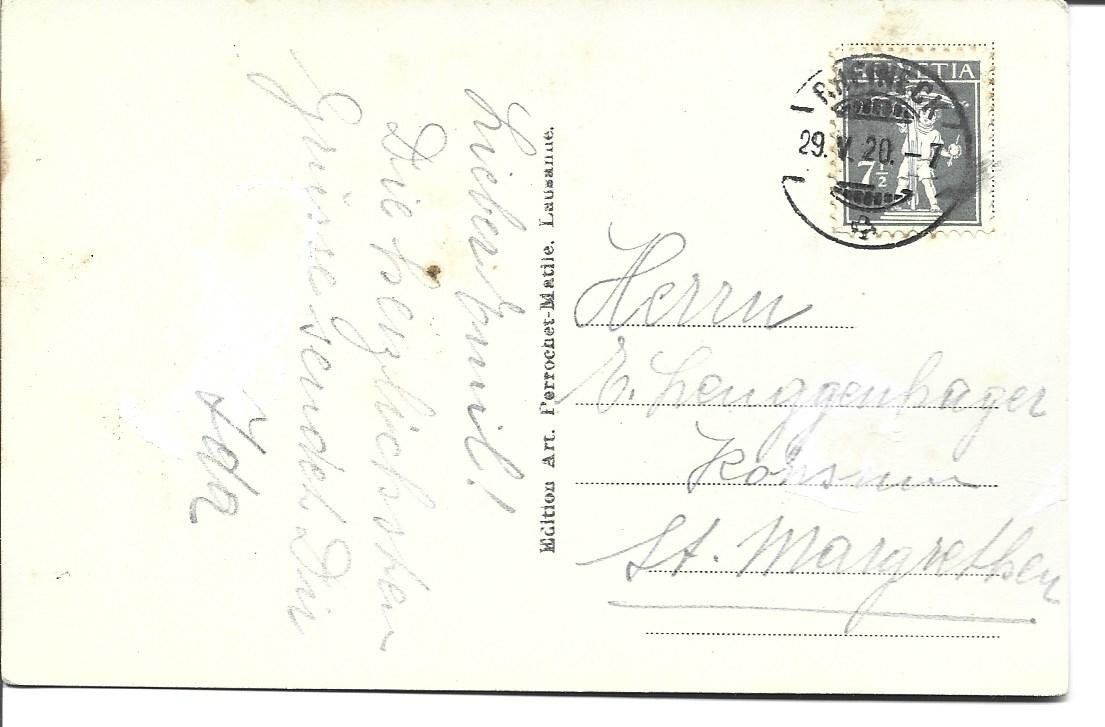 Lieber Emil!
Die herzlichsten
Grüsse sendet Dir
Ida
Edition Art. Perrochet-Matile, Lausanne.
HELVETIA
7½
RHEINECK
29. V. 20. – 7
Herrn
E. Lenggenhager
Konsum
St. Margrethen